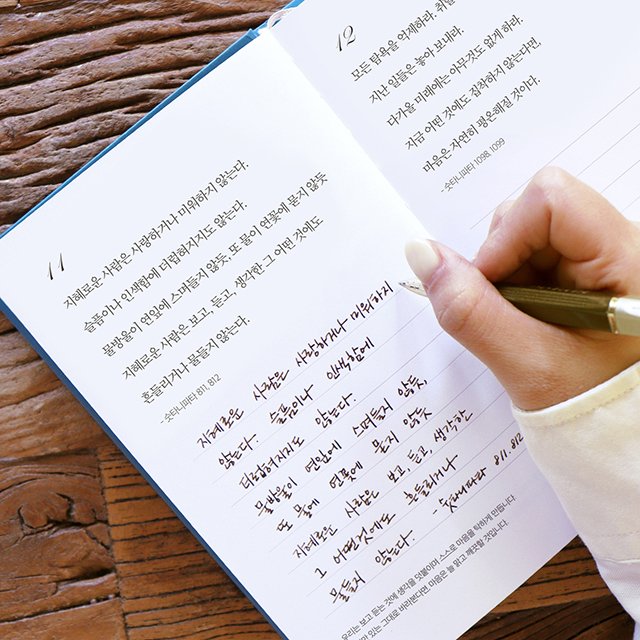 11
지혜로운 사람은 사랑하거나 미워하지 않는다.
슬픔이나 인색함에 더럽혀지지도 않는다.
물방울이 연잎에 스며들지 않듯, 또 물이 연꽃에 묻지 않듯
지혜로운 사람은 보고, 듣고, 생각한 그 어떤 것에도
흔들리거나 물들지 않는다.
- 숫타니파타 811, 812
지혜로운 사람은 사랑하거나 미워하지
않는다. 슬픔이나 인색함에
더럽혀지지도 않는다.
물방울이 연잎에 스며들지 않듯,
또 물에 연꽃에 묻지 않듯
지혜로운 사람은 보고, 듣고, 생각한
그 어떤것에도 흔들리거나
물들지 않는다. - 숫타니파타 811, 812
우리는 보고 듣는 것에 생각을 덧붙이며 스스로 마음을 탁하게 만듭니다.
있는 그대로 바라본다면, 마음은 늘 맑고 깨끗할 것입니다.
12
모든 탐욕을 억제하라.
지난 일들은 놓아 보내라.
다가올 미래에는 아무것도 없게 하라.
지금 어떤 것에도 집착하지 않는다면,
마음은 자연히 평온해질 것이다.
- 숫타니파타 1098, 1099